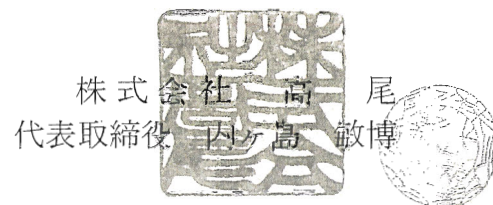 株式会社 高尾
代表取締役 内ヶ島 敏博